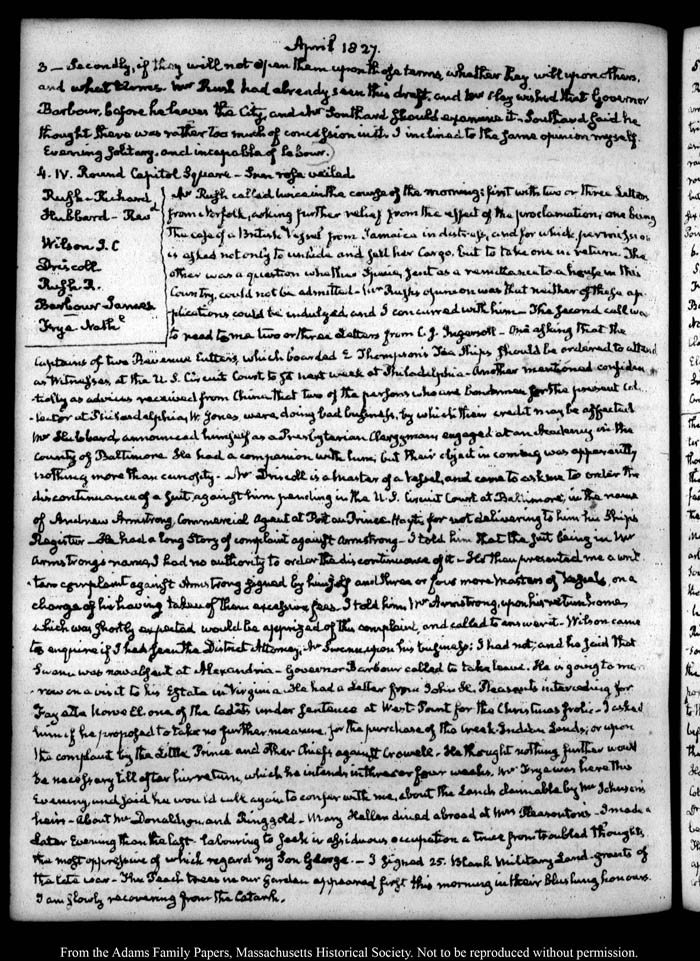 April 1827.
3 — Secondly, if they will not open them upon those terms, whether they will upon others,
and what terms. Mr Rush had already seen this draft, and Mr Clay wished that Governor
Barbour, before he leaves the City, and Mr Southard should examine it. Southard said he
thought there was rather too much of concession in it. I inclined to the same opinion myself.
Evening solitary, and incapable of labour.
4. IV. Round Capitol Square — Sun rose veiled
Rush - Richard
Hubbard - Revd
Wilson J. C
Driscoll
Rush. R.
Barbour James
Frye Nathl
Mr Rush called twice in the course of the morning: first with two or three Letters
from Norfolk, asking further relief from the effect of the proclamation; one being
the case of a British Vessel from Jamaica in distress, and for which permission
is asked not only to unlade and sell her Cargo, but to take one in return. The
other was a question whether Specie, sent as a remittance to a house in this
Country, could not be admitted — Mr Rush's opinion was that neither of these ap-
plications could be indulged and I concurred with him — The second call was
to read to me two or three Letters from C. J. Ingersoll — One asking that the
Captains of two Revenue Cutters, which boarded E Thompson's Tea Ships should be ordered to attend
as Witnesses, at the U. S. Circuit Court to sit next week at Philadelphia — Another mentioned confiden-
tially as advices received from China that two of the persons who are bondsmen for the present Col-
lector at Philadelphia, W. Jones, were doing bad business, by which their credit may be affected
Mr Hubbard, announced himself as a Presbyterian Clergyman, engaged at an Academy in the
County of Baltimore. He had a companion with him; but their object in coming was apparently
nothing more than curiosity. — Mr Driscoll is a Master of a Vessel, and came to ask me to order the
discontinuance of a suit, against him pending in the U. S. Circuit Court at Baltimore, in the name
of Andrew Armstrong, Commercial Agent at Port au Prince, Hayti, for not delivering to him his Ship's
Register — He had a long Story of complaint against Armstrong — I told him that the suit being in Mr
Armstrong's name, I had no authority to order the discontinuance of it — He then presented me a writ-
ten complaint against Armstrong signed by himself and three or four more Masters of Vessels, on a
charge of his having taken of them excessive fees. I told him Mr Armstrong, upon his return home,
which was shortly expected would be apprized of the complaint, and called to answer it. Wilson came
to enquire if I had seen the District Attorney, Mr Swann upon his business: I had not; and he said that
Swann was now absent at Alexandria — Governor Barbour called to take leave. He is going to mor-
row on a visit to his Estate in Virginia. He had a Letter from John H. Pleasants interceding for
Fayette one of the Cadets under sentence at West Point for the Christmas frolic — I asked
him if he proposed to take no further measure, for the purchase of the Creek Indian Lands; or upon
the complaint by the Little Prince and other Chiefs against Crowell — He thought nothing further would
be necessary till after his return, which he intends in three or four weeks. Mr Frye was here this
Evening, and said he would call again to confer with me, about the Land claimable by Mr Johnson's
heirs — About Mr Donaldson and Ringgold — Mary Hellen dined abroad at Mrs Pleasonton's — I made a
later Evening than the last labouring to seek in assiduous occupation a truce from troubled thoughts
the most oppressive of which regard my Son George. — I signed 25. Blank Military Land-grants of
the late war — The Peach trees in our Garden appeared first this morning in their blushing honours.
I am slowly recovering from the Catarrh.
From the Adams Family Papers, Massachusetts Historical Society. Not to be reproduced without permission.